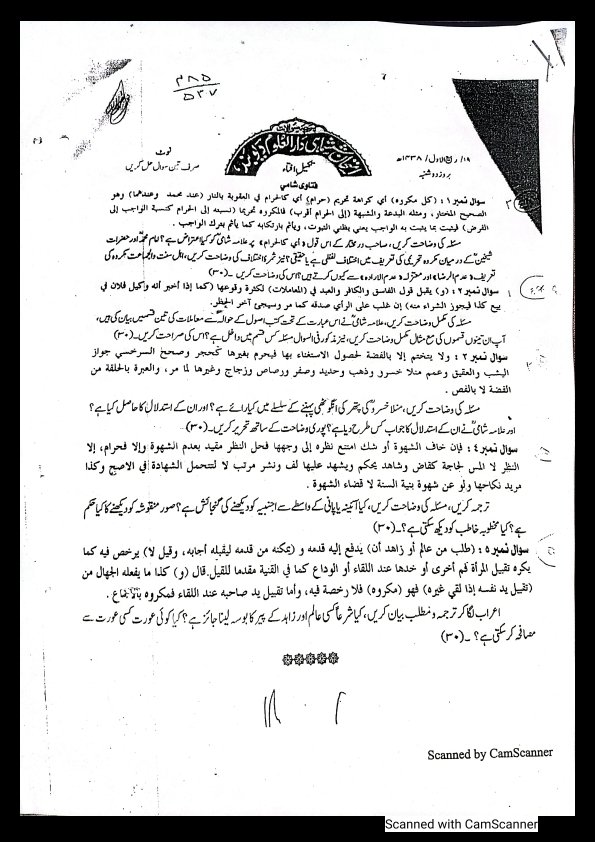 ۱۹/ ربیع الاول/ ۱۴۳۸ھ
بروز دوشنبہ
امتحان ششماہی دارالعلوم دیوبند
تکمیل افتاء
نوٹ
صرف تین سوال حل کریں
فتاویٰ شامی
سوال نمبر ۱: (کل مکروه) أي كراهة تحريم (حرام) أي كالحرام في العقوبة بالنار (عند محمد وعندهما) وهو
الصحيح المختار، ومثله البدعة والشبهة (إلى الحرام أقرب) فالمكروه تحريما (نسبته إلى الحرام كنسبة الواجب إلى
الفرض) فيثبت بما يثبت به الواجب يعني بظني الثبوت، ويأثم بارتكابه كما يأثم بترك الواجب.
مسئلہ کی وضاحت کریں، صاحب در مختار کے اس قول «أي كالحرام» پر علامہ شامیؒ کو کیا اعتراض ہے؟ امام محمدؒ اور حضرات
شیخینؒ کے درمیان مکروہ تحریمی کی تعریف میں اختلاف لفظی ہے یا حقیقی؟ نیز ثمرۂ اختلاف کی وضاحت کریں، اہل سنت والجماعت مکروہ کی
تعریف «عدم الرضا» اور معتزلہ «عدم الارادہ» سے کیوں کرتے ہیں؟ اس کی وضاحت کریں۔ (۳۰)
سوال نمبر ۲: (و) يقبل قول الفاسق والكافر والعبد في (المعاملات) لكثرة وقوعها (كما إذا أخبر أنه وكيل فلان في
بيع كذا فيجوز الشراء منه) إن غلب على الرأي صدقه كما مر وسيجيء آخر الحظر.
مسئلہ کی مکمل وضاحت کریں، علامہ شامیؒ نے اس عبارت کے تحت کتب اصول کے حوالہ سے معاملات کی تین قسمیں بیان کی ہیں،
آپ ان تینوں قسموں کی مع مثال مکمل وضاحت کریں، نیز مذکور فی السوال مسئلہ کس قسم میں داخل ہے؟ اس کی صراحت کریں۔ (۳۰)
سوال نمبر ۳: ولا يتختم إلا بالفضة لحصول الاستغناء بها فيحرم بغيرها كحجر وصحح السرخسي جواز
اليشب والعقيق وعمم منلا خسرو وذهب وحديد وصفر ورصاص وزجاج وغيرها لما مر، والعبرة بالحلقة من
الفضة لا بالفص.
مسئلہ کی وضاحت کریں، منلا خسروؒ کی پتھر کی انگوٹھی پہننے کے سلسلے میں کیا رائے ہے؟ اور ان کے استدلال کا حاصل کیا ہے؟
اور علامہ شامیؒ نے ان کے استدلال کا جواب کس طرح دیا ہے؟ پوری وضاحت کے ساتھ تحریر کریں۔ (۳۰)
سوال نمبر ۴: فإن خاف الشهوة أو شك امتنع نظره إلى وجهها فحل النظر مقيد بعدم الشهوة وإلا فحرام، إلا
النظر لا المس لحاجة كقاض وشاهد يحكم ويشهد عليها لف ونشر مرتب لا لتتحمل الشهادة في الاصح وكذا
مريد نكاحها ولو عن شهوة بنية السنة لا قضاء الشهوة.
ترجمہ کریں، مسئلہ کی وضاحت کریں، کیا آئینہ یا پانی کے واسطے سے اجنبیہ کو دیکھنے کی گنجائش ہے؟ صور منقوشہ کو دیکھنے کا کیا حکم
ہے؟ کیا مخطوبہ خاطب کو دیکھ سکتی ہے؟۔ (۳۰)
سوال نمبر ۵: (طلب من عالم أو زاهد أن) يدفع إليه قدمه و (يمكنه من قدمه ليقبله أجابه، وقيل لا) يرخص فيه كما
يكره تقبيل المرأة فم أخرى أو خدها عند اللقاء أو الوداع كما في القنية مقدما للقيل. قال (و) كذا ما يفعله الجهال من
(تقبيل يد نفسه إذا لقي غيره) فهو (مكروه) فلا رخصة فيه، وأما تقبيل يد صاحبه عند اللقاء فمكروه بالاجماع.
اعراب لگا کر ترجمہ و مطلب بیان کریں، کیا شرعاً کسی عالم اور زاہد کے پیر کا بوسہ لینا جائز ہے؟ کیا کوئی عورت کسی عورت سے
مصافحہ کر سکتی ہے؟ ۔ (۳۰)
Scanned by CamScanner
Scanned with CamScanner